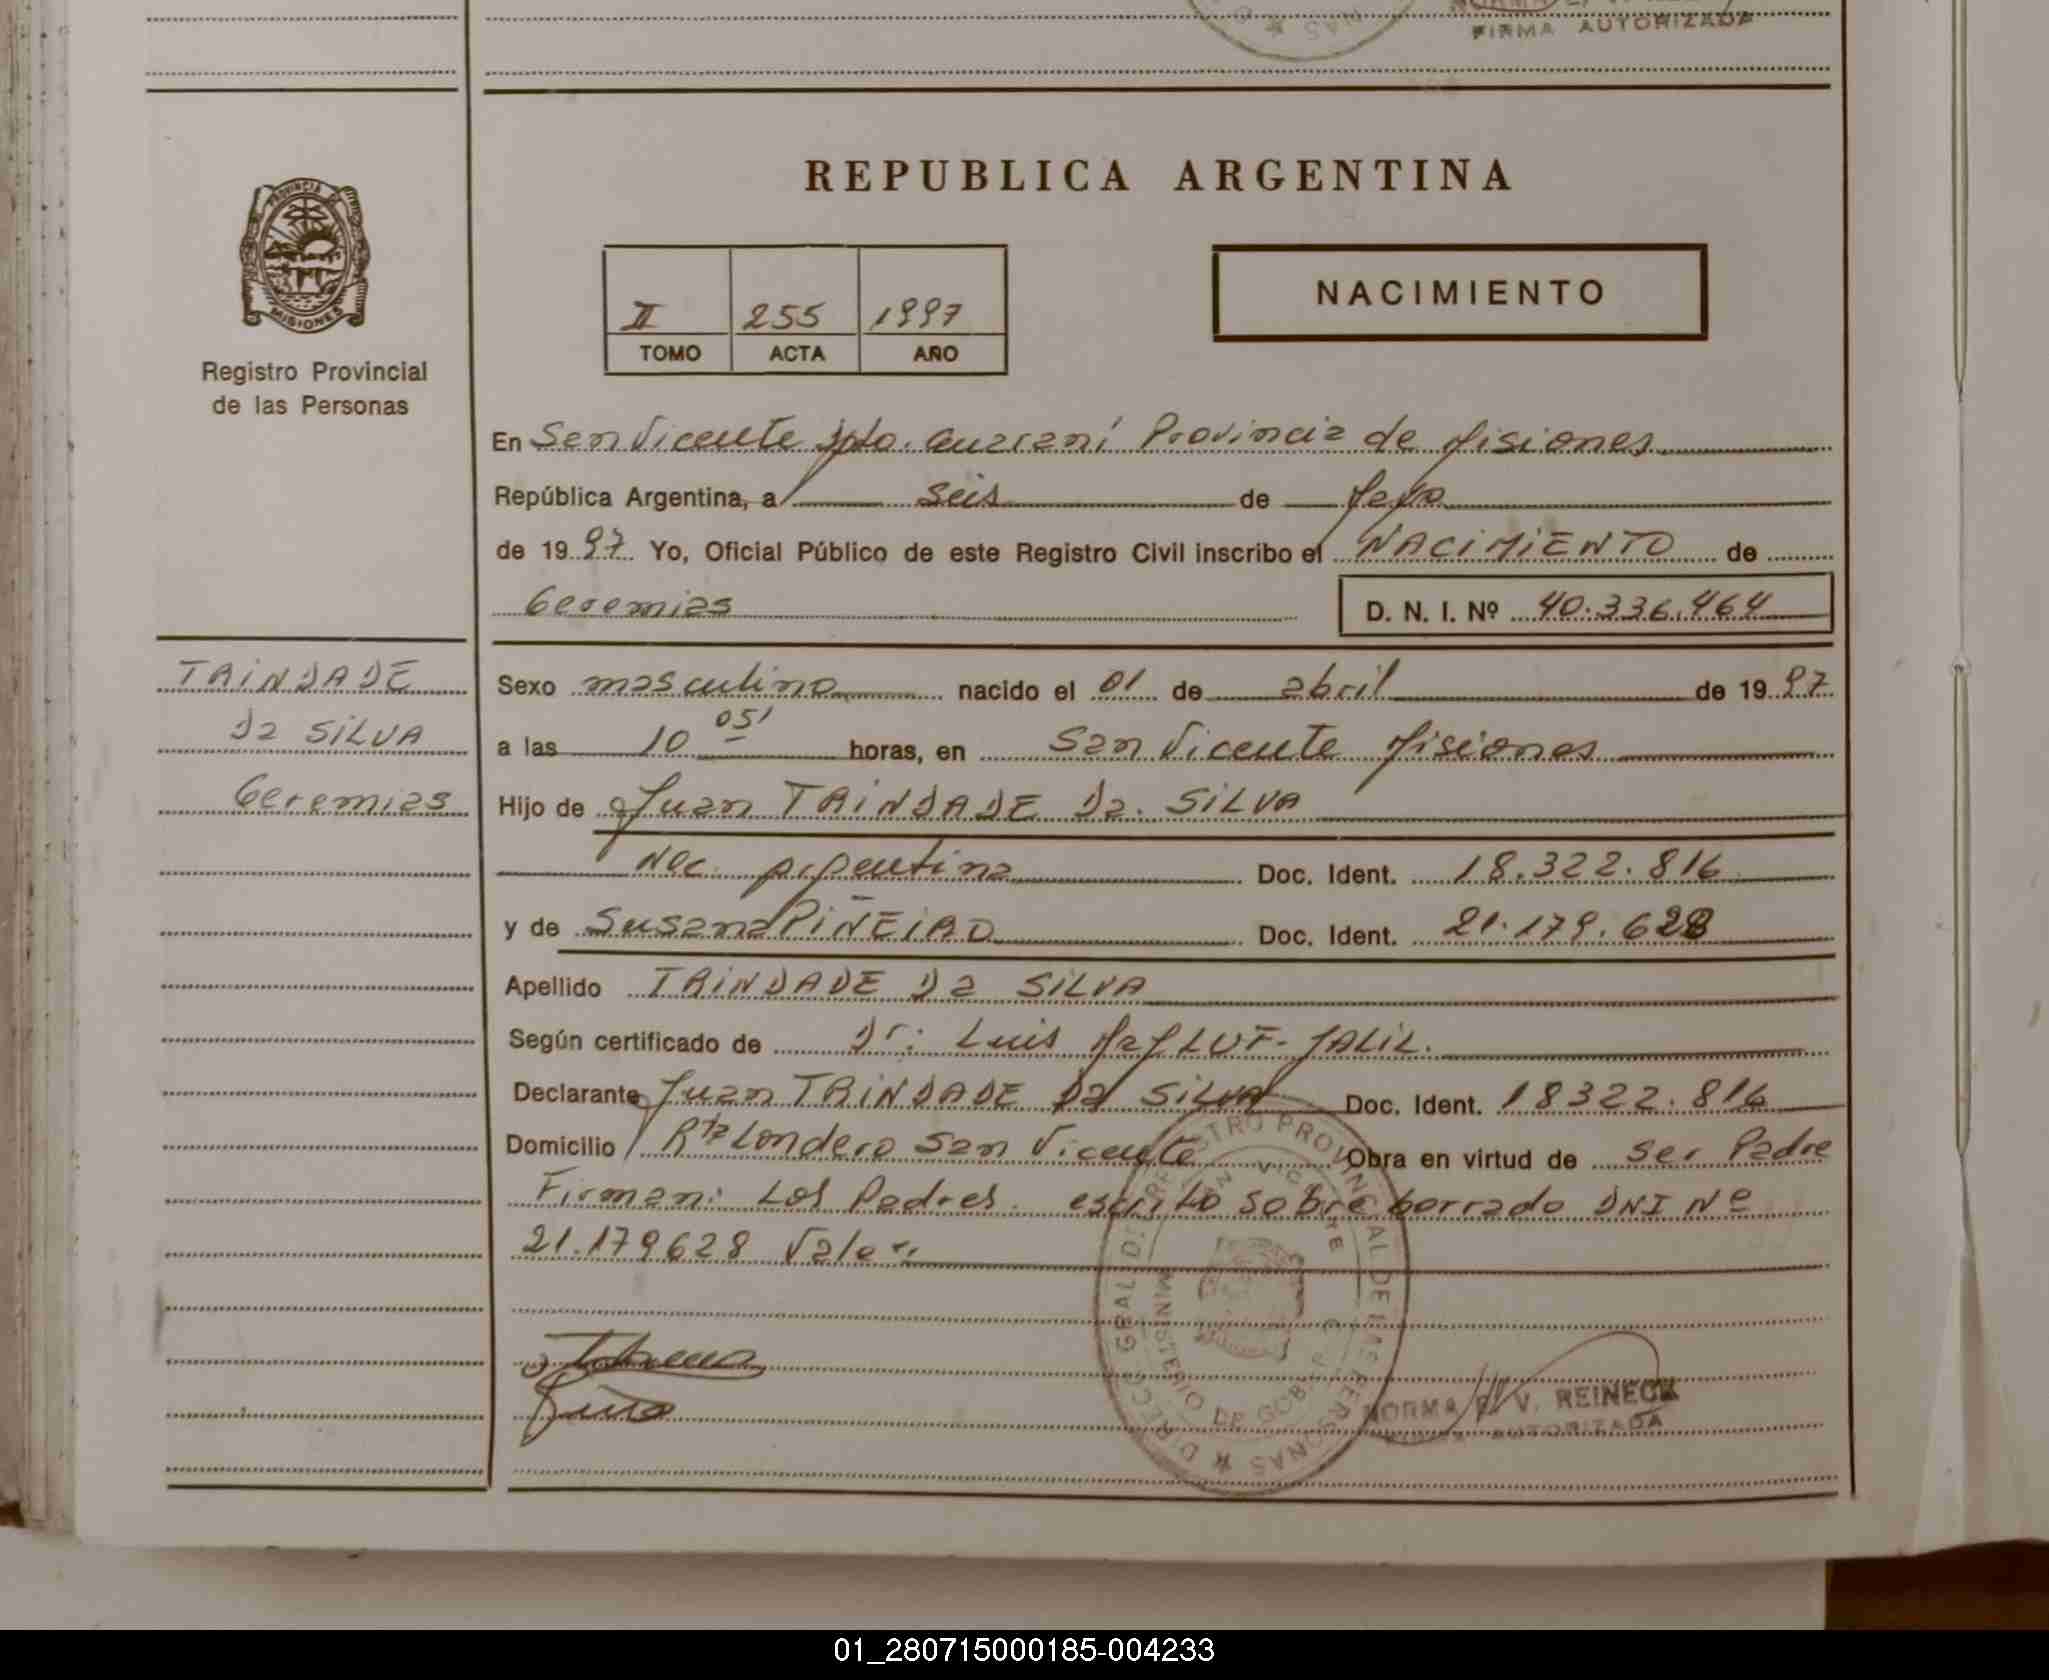 FIRMA AUTORIZADA
REPUBLICA ARGENTINA
PROVINCIA DE
MISIONES
Registro Provincial
de las Personas
II 255 1997
TOMO ACTA AÑO
NACIMIENTO
En San Vicente Dpto. Guaraní Provincia de Misiones
República Argentina, a seis de Mayo
de 1997 Yo, Oficial Público de este Registro Civil inscribo el NACIMIENTO de
Geremias D. N. I. Nº 40.336.464
TRINDADE
Da SILVA
Geremias
Sexo masculino nacido el 01 de abril de 1997
a las 10 05' horas, en San Vicente Misiones
Hijo de Juan TRINDADE Da. SILVA
Nac. Argentina Doc. Ident. 18.322.816
y de Susana PIÑEIRO Doc. Ident. 21.179.628
Apellido TRINDADE Da SILVA
Según certificado de Dr: Luis MaJLUF-JALIL.
Declarante Juan TRINDADE Da SILVA Doc. Ident. 18322.816
Domicilio Rta Londero San Vicente Obra en virtud de ser Padre
Firman: Los Padres. escrito sobre borrado DNI Nº
21.179628 Vale.
DIRECC. GRAL DEL REGISTRO PROVINCIAL DE LAS PERSONAS
MINISTERIO DE GOB.
SAN VICENTE
NORMA V. REINECK
FIRMA AUTORIZADA
01_280715000185-004233